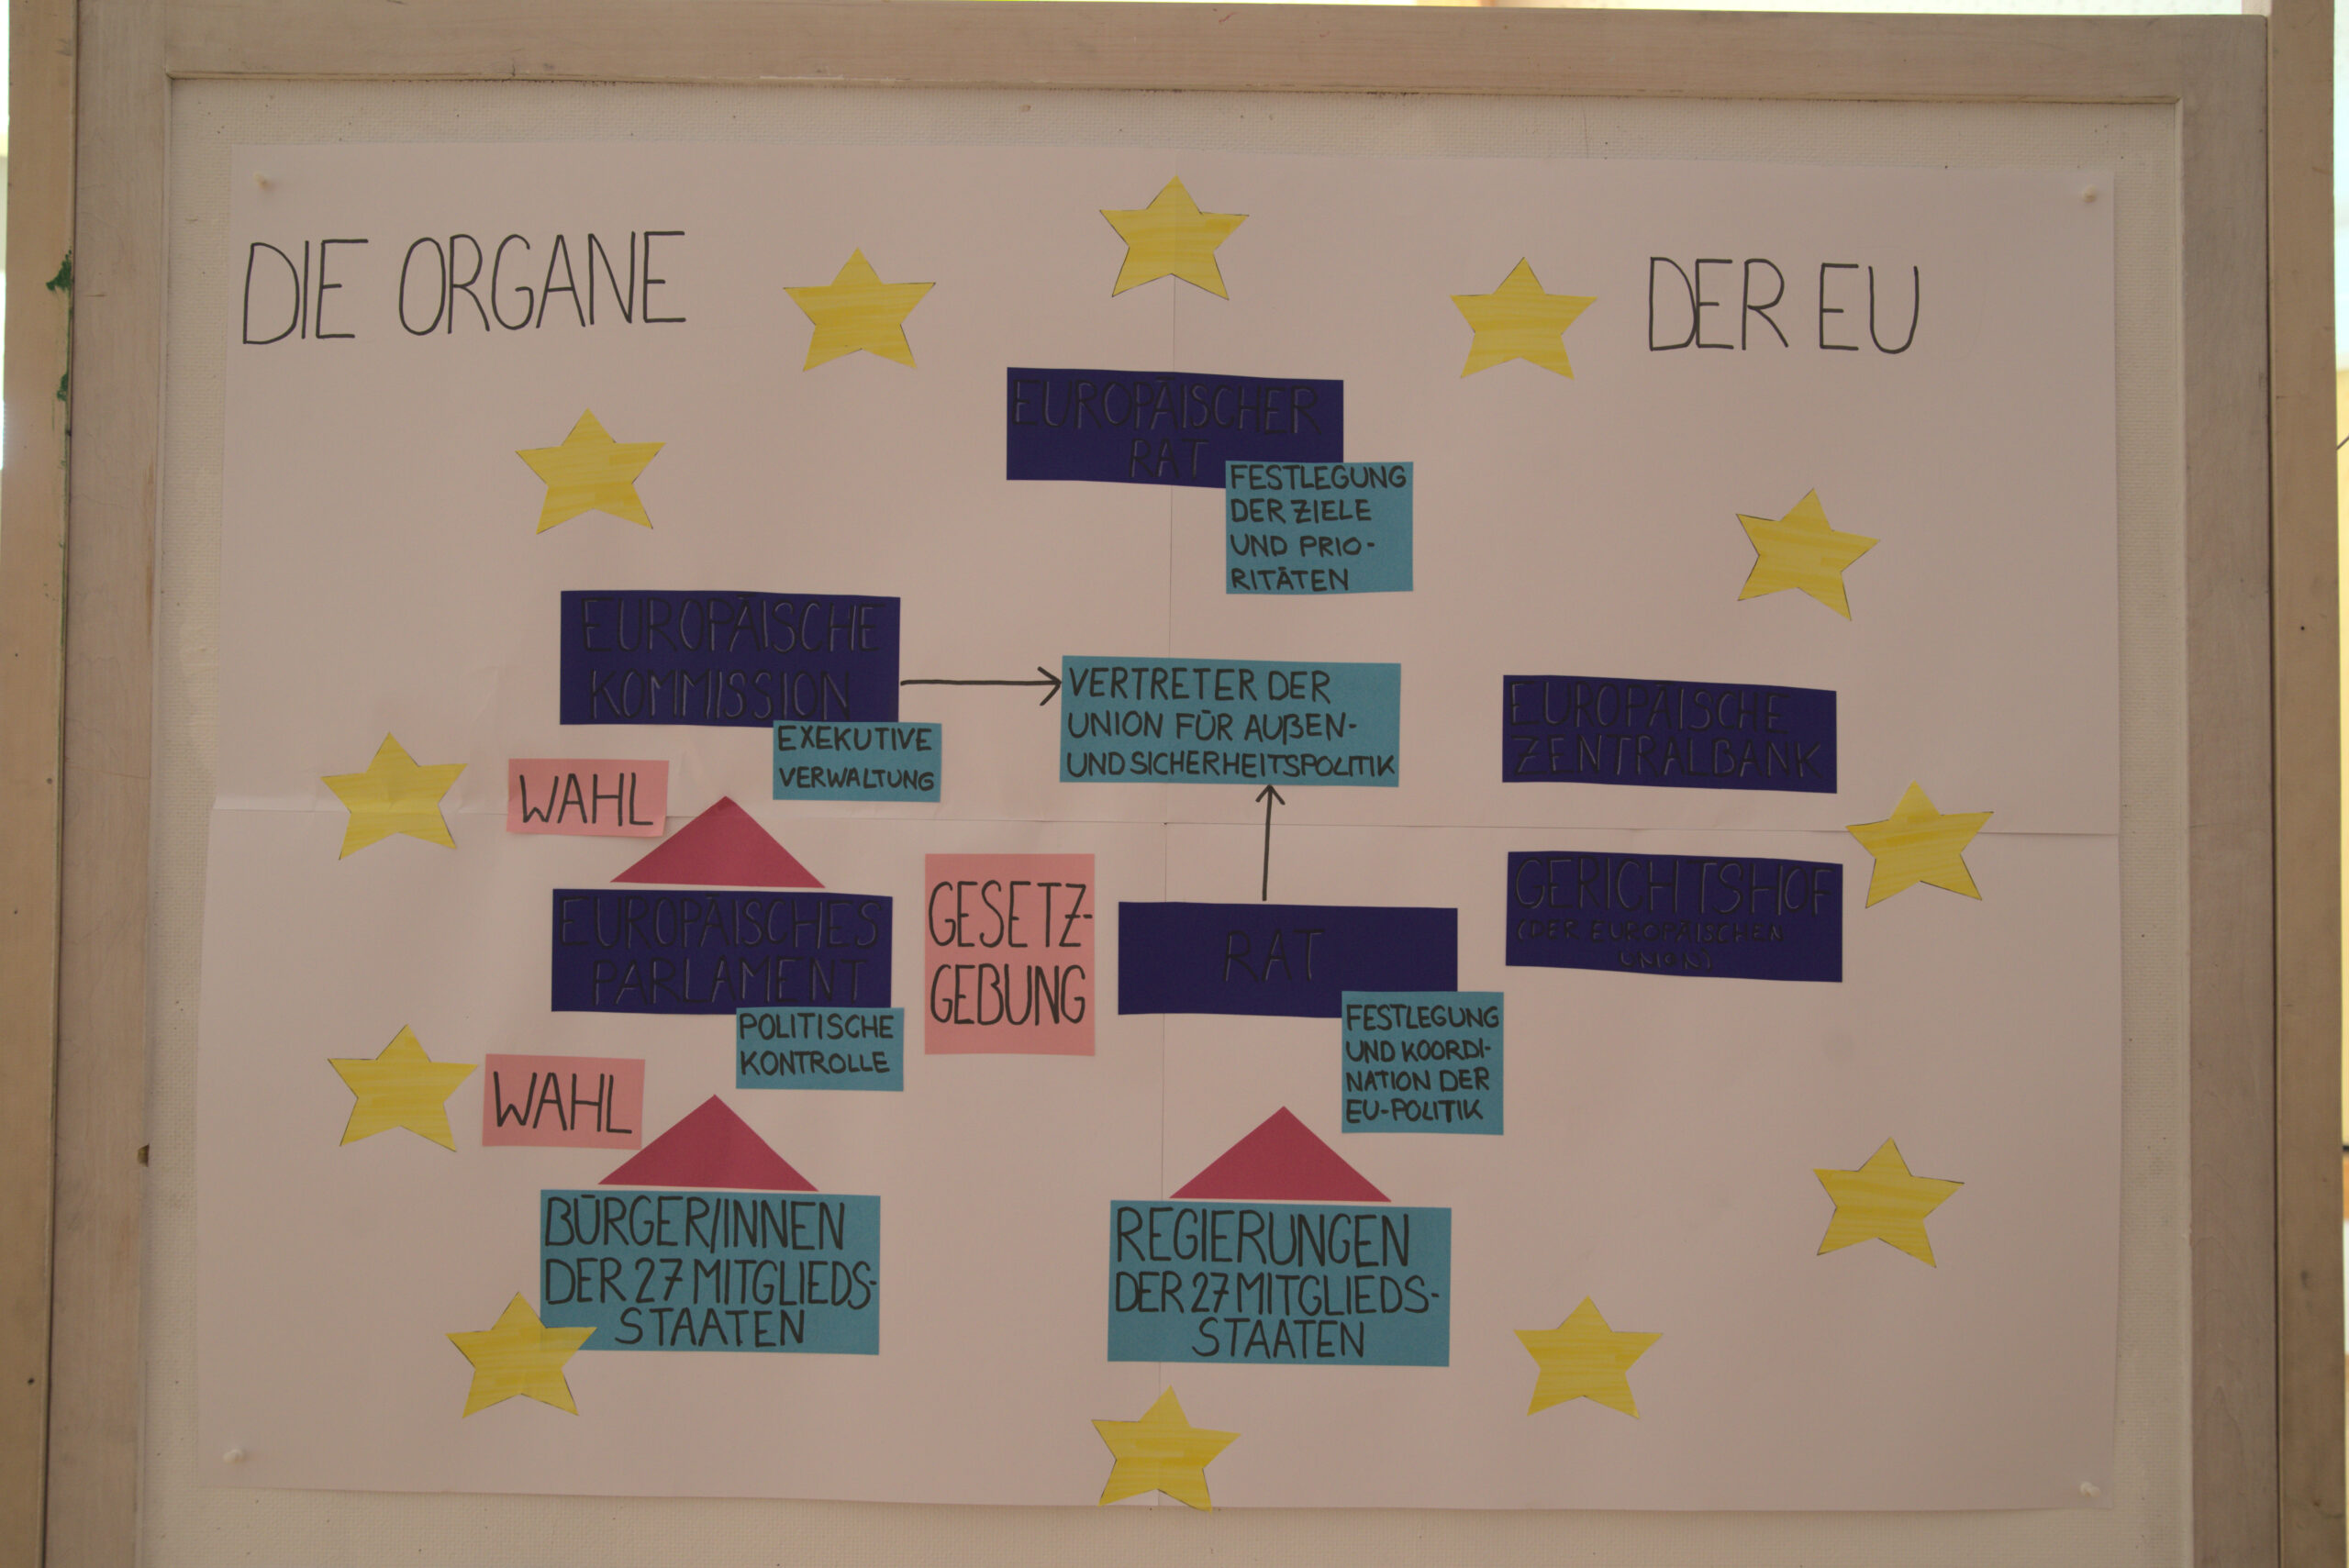 DIE ORGANE
DER EU
EUROPÄISCHER
RAT
FESTLEGUNG
DER ZIELE
UND PRIO-
RITÄTEN
EUROPÄISCHE
KOMMISSION
EXEKUTIVE
VERWALTUNG
VERTRETER DER
UNION FÜR AUßEN-
UND SICHERHEITSPOLITIK
EUROPÄISCHE
ZENTRALBANK
WAHL
EUROPÄISCHES
PARLAMENT
POLITISCHE
KONTROLLE
GESETZ-
GEBUNG
RAT
FESTLEGUNG
UND KOORDI-
NATION DER
EU-POLITIK
GERICHTSHOF
(DER EUROPÄISCHEN
UNION)
WAHL
BÜRGER/INNEN
DER 27 MITGLIEDS-
STAATEN
REGIERUNGEN
DER 27 MITGLIEDS-
STAATEN